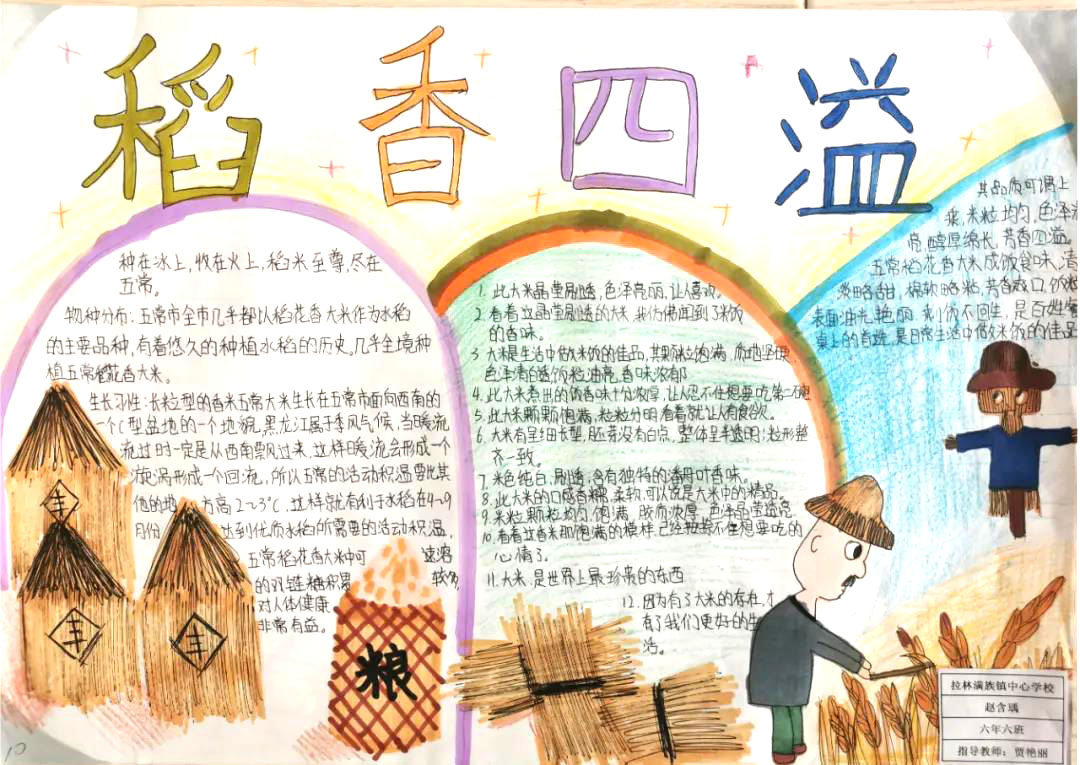 稻香四溢
种在冰上,收在火上,稻米至尊,尽在
五常。
物种分布:五常市全市几乎都以稻花香大米作为水稻
的主要品种,有着悠久的种植水稻的历史,几乎全境种
植五常稻花香大米。
生长习性:长粒型的香米五常大米生长在五常市面向西南的
一个C型盆地的一个地貌,黑龙江属于季风气候,当暖流
流过时一定是从西南飘过来,这样暖流会形成一个
漩涡形成一个回流,所以五常的活动积温要比其
他的地方高2~3℃,这样就有利于水稻在4~9
月份达到优质水稻所需要的活动积温,
五常稻花香大米中可速溶
的双链糖积累较
对人体健康
非常有益。
丰
丰
丰
粮
1.此大米晶莹剔透,色泽亮丽,让人喜欢。
2.看着这晶莹剔透的大米 我仿佛闻到了米饭
的香味。
3.大米是生活中做米饭的佳品,其颗粒饱满,质地坚硬
色泽清白透 饭粒油亮,香味浓郁
4.此大米煮出的饭香味十分浓厚,让人忍不住想要吃第二碗
5.此大米颗颗饱满,粒粒分明 看着就让人有食欲。
6.大米有呈细长型,胚芽没有白点,整体呈半透明;粒形整
齐一致。
7.米色纯白,剔透,含有独特的香味。
8.此大米的口感香糯,柔软,可以说是大米中的精品。
9.米粒颗粒均匀,饱满,胶质浓厚,色泽晶莹透亮
10.看着这香米那饱满的模样,已经按捺不住想要吃的
心情了。
11.大米,是世界上最珍贵的东西
12.因为有了大米的存在,才
有了我们更好的生
活。
其品质可谓上
乘,米粒均匀,色泽
亮,醇厚绵长,芳香四溢。
五常稻花香大米成饭食味,清
淡略甜,绵软略粘,芳香爽口,饭粒
表面油光艳丽,剩饭不回生,是百姓餐
桌上的首选,是日常生活中做米饭的佳品
拉林满族镇中心学校
赵含瑀
六年六班
指导教师:贾艳丽